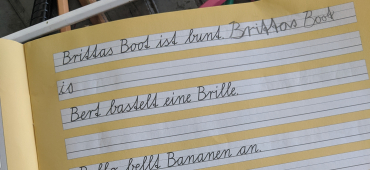 Brittas Boot ist bunt. Brittas Boot
is
Bert bastelt eine Brille.
bellt Bananen an.